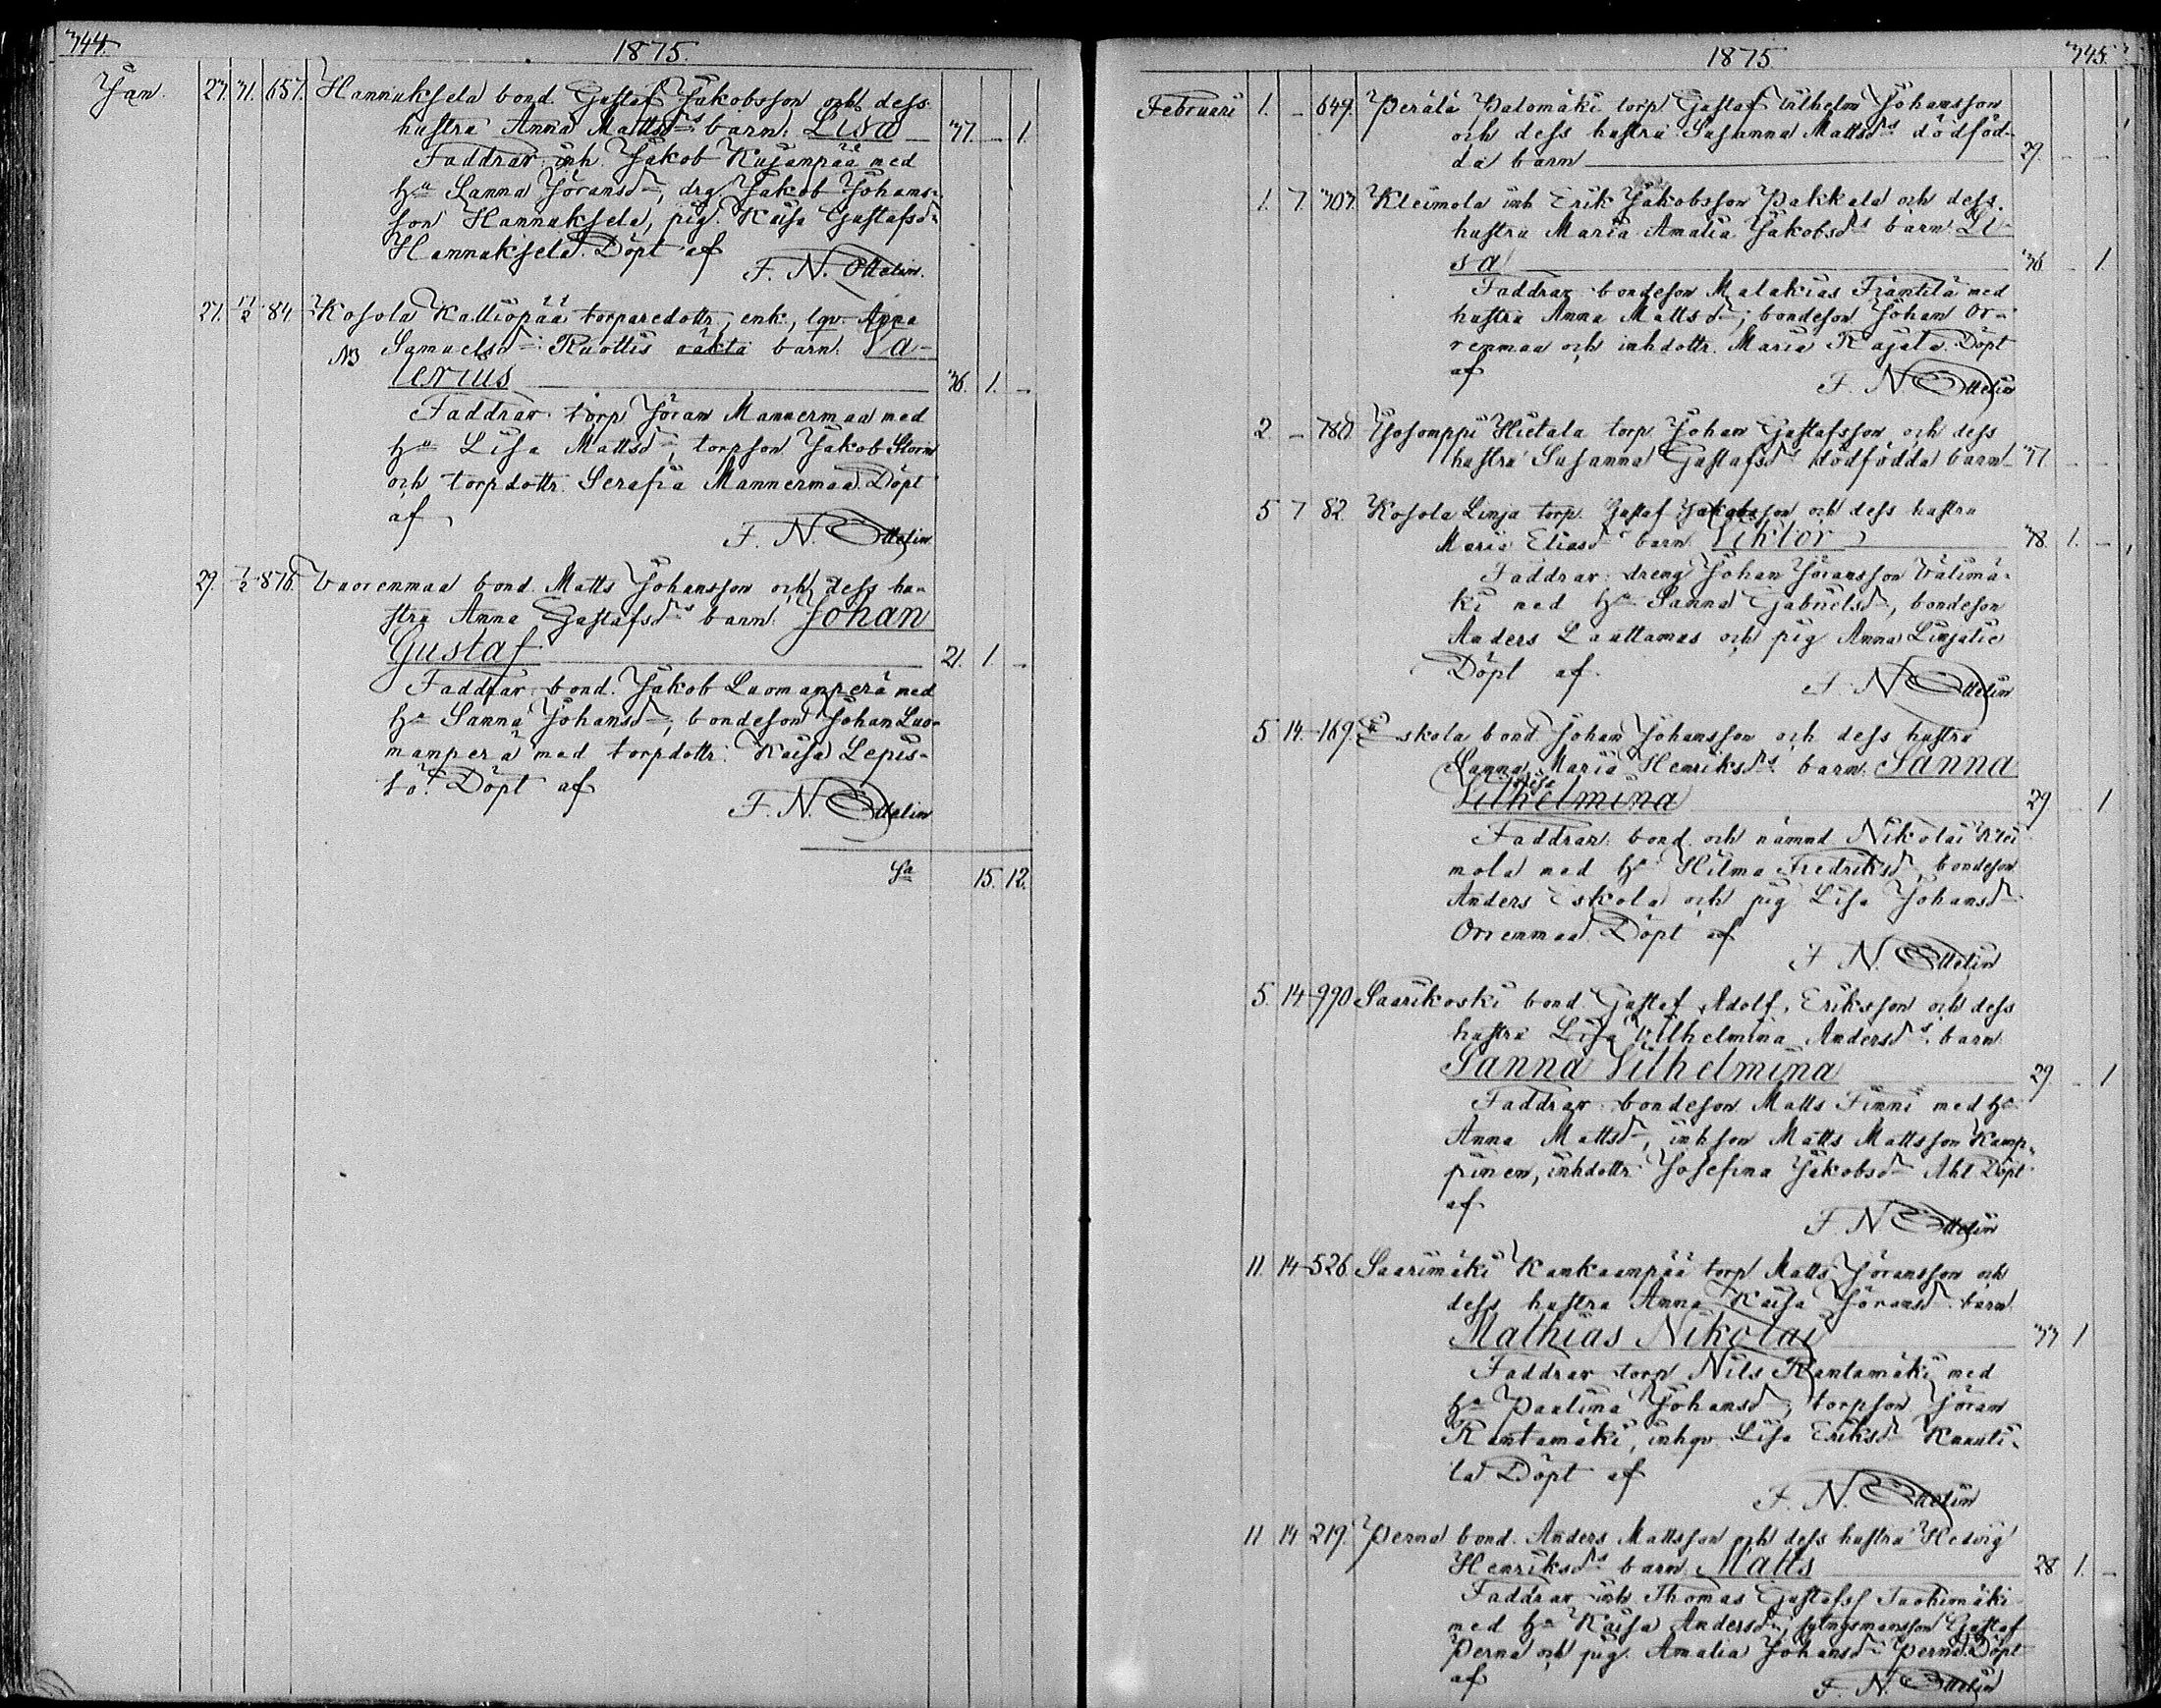 344.
1875.
Jan. 27. 31. 657. Hannuksela bond. Gustaf Jakobsson och dess
hustru Anna Mattsdrs barn: Lisa 37. — 1.
Faddrar: inh. Jakob Kujanpää med
hu Sanna Jöransdr, drg Jakob Johans-
son Hannuksela, pig. Kaisa Gustafsdr
Hannuksela. Döpt af
F. N. Ottelin.
27. 17/2 84. Kosola Kalliopää torparedottr, enk., lqv. Anna
NB Samuelsdr Ruottis oäkta barn: Va-
lerius 36. 1. —
Faddrar: torp Jöran Mannermaa med
hu Lisa Mattsdr, torpson Jakob Storm
och torpdottr. Serafia Mannermaa. Döpt
af
F. N. Ottelin
29. 7/2 876. Vuorenmaa bond. Matts Johansson och dess hu-
stru Anna Gustafsdrs barn: Johan
Gustaf 21. 1. —
Faddrar: bond. Jakob Luomanperä med
hu Sanna Johansdr, bondeson Johan Luo-
manperä med torpdottr: Kaisa Lepis-
tö. Döpt af
F. N. Ottelin
Sa 15. 12.
1875
345.
Februari 1. — 649. Perälä Palomäki torp Gustaf Wilhelm Johansson
och dess hustru Susanna Mattsdrs dödföd-
da barn 29. — —
1. 7. 707. Kleimola inh Erik Jakobsson Pakkala och dess
hustru Maria Amalia Jakobsdrs barn: Li-
sa 36. — 1.
Faddrar: bondeson Malakias Frantila med
hustru Anna Mattsdr; bondeson Johan Or-
renmaa och inhdottr. Maria Rajala. Döpt
af
F. N. Ottelin
2 — 780. Hietala torp Johan Gustafsson och dess
hustru Susanna Gustafsdrs dödfödda barn 37. — —
5 7 82. Kosola Linja torp. Gustaf Jakobsson och dess hustru
Maria Eliasdrs barn: Viktor 38. 1. —
Faddrar: dreng Johan Jöransson Välimä-
ki med hu Sanna Gabrielsdr, bondeson
Anders Lauttamus och pig Anna
Döpt af
F. N. Ottelin
5 14. 169. Eskola bond Johan Johansson och dess hustru
Sanna Maria Henriksdrs barn: Sanna
Vilhelmina 29 — 1
Faddrar: bond. och nämnd Nikolai Klei
mola med hu Hilma Fredriksdr, bondeson
Anders Eskola och pig Lisa Johansdr
Orrenmaa. Döpt af
F. N. Ottelin
5. 14 990 Saarikoski bond. Gustaf Adolf Eriksson och dess
hustru Lisa Vilhelmina Andersdrs barn:
Sanna Vilhelmina 29 — 1
Faddrar: bondeson Matts Finni med hu
Anna Mattsdr, inhson Matts Mattsson Kamp-
pinen, inhdottr Josefina Jakobsdr Ahl. Döpt
af
F. N. Ottelin
11. 14 526. Saarimäki Kankaanpää torp Matts Jöransson och
dess hustru Anna Kaisa Jöransdrs barn
Mathias Nikolai 33 1
Faddrar torp Nils Rantamäki med
hu Paulina Johansdr, torpson Jöran
Rantamäki, inhqv. Lisa Eriksdr Knuuti-
la. Döpt af
F. N. Ottelin
11 14 219. Perna bond. Anders Mattsson och dess hustru Hedvig
Henriksdrs barn Matts 28 1. —
Faddrar inh Thomas Gustafss
med hu Kaisa Andersdr, sytngsmansson Gustaf
Perna och pig. Amalia Johansdr Perna. Döpt
af
F. N. Ottelin